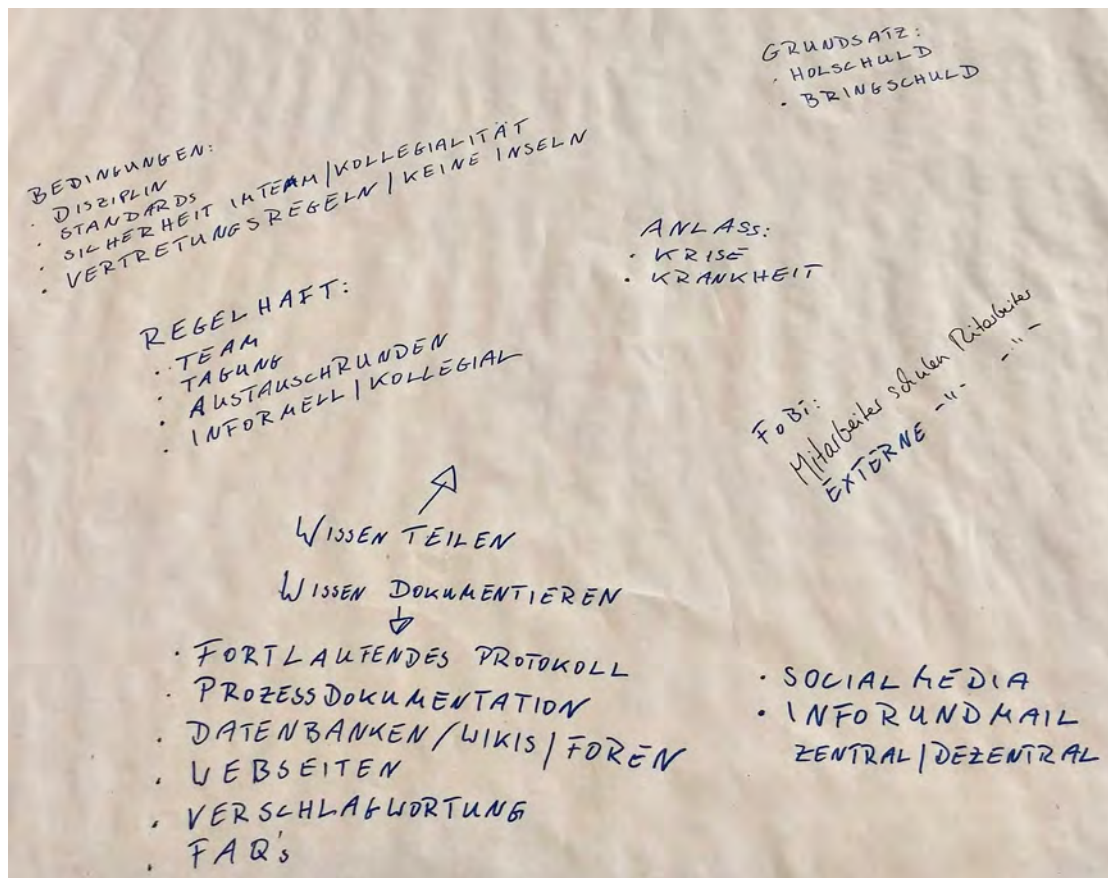 GRUNDSATZ:
· HOLSCHULD
· BRINGSCHULD
BEDINGUNGEN:
· DISZIPLIN
· STANDARDS
· SICHERHEIT IM TEAM/KOLLEGIALITÄT
· VERTRETUNGSREGELN/KEINE INSELN
ANLASS:
· KRISE
· KRANKHEIT
REGELHAFT:
· TEAM
· TAGUNG
· AUSTAUSCHRUNDEN
· INFORMELL/KOLLEGIAL
FOBI:
Mitarbeiter schulen Mitarbeiter
EXTERNE -"- -"-
WISSEN TEILEN
WISSEN DOKUMENTIEREN
· FORTLAUFENDES PROTOKOLL
· PROZESSDOKUMENTATION
· DATENBANKEN/WIKIS/FOREN
· WEBSEITEN
· VERSCHLAGWORTUNG
· FAQ's
· SOCIAL MEDIA
· INFORUNDMAIL
ZENTRAL/DEZENTRAL